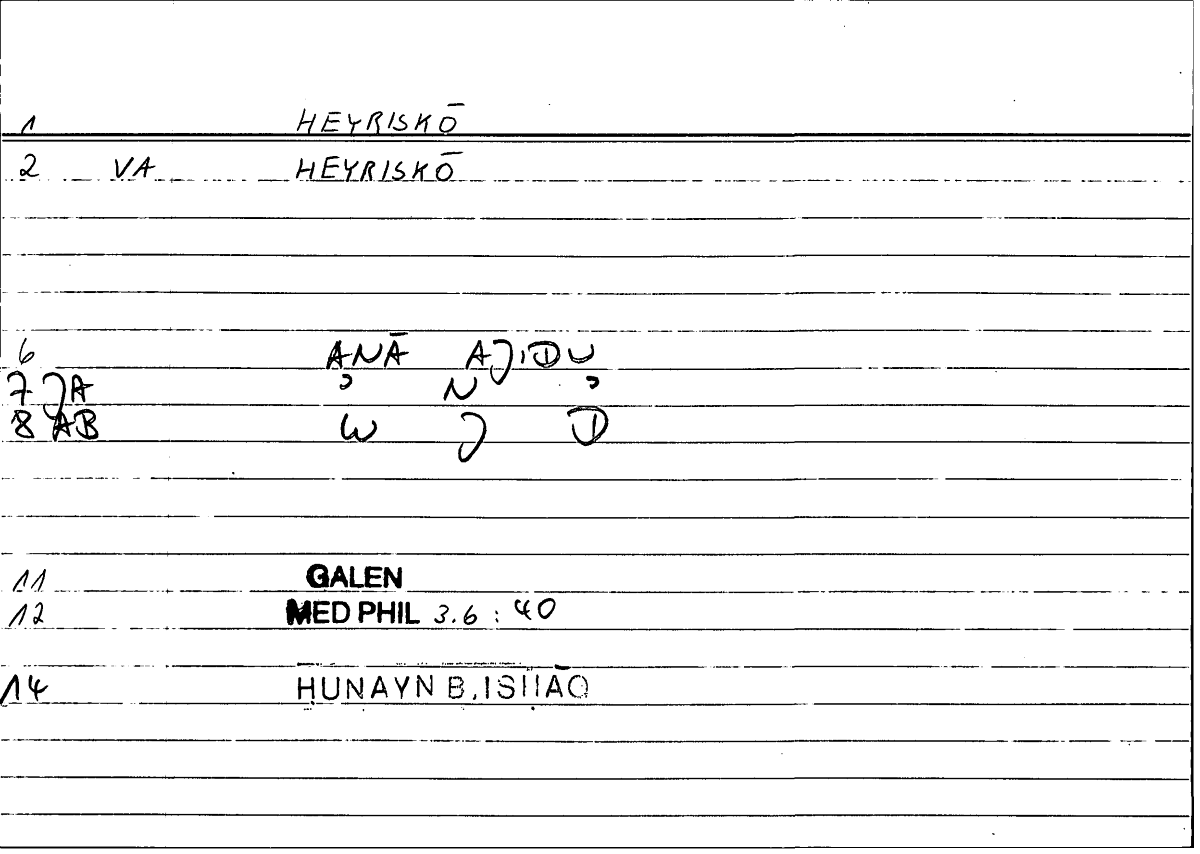 1 HEYRISKŌ
2 VA HEYRISKŌ
6 ẠNĀ AJIDỤ
7 JA ʾ N ʾ
8 AB W J D
11 GALEN
12 MED PHIL 3.6 : 40
14 ḤUNAYN B. ISḤĀQ